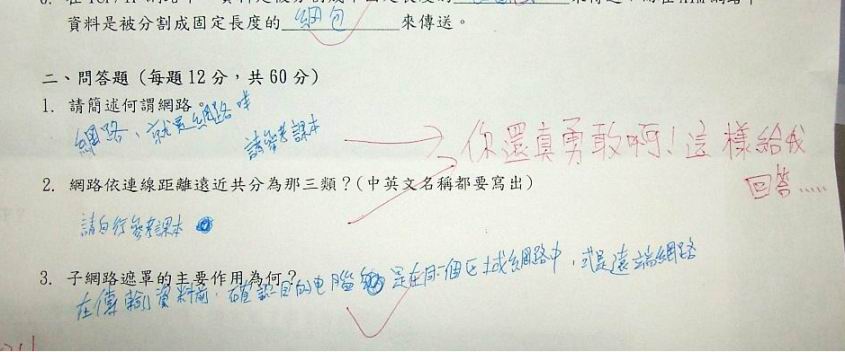 資料是被分割成固定長度的 網包 來傳送。
二、問答題（每題12分，共60分）
1. 請簡述何謂網路。
網路、就是網路咩
請參考課本
你還真勇敢啊！這樣給我
回答.....
2. 網路依連線距離遠近共分為那三類？(中英文名稱都要寫出)
請自行參考課本
3. 子網路遮罩的主要作用為何？
在傳輸資料前，確認目的电腦 是在同一個区域網路中，或是遠端網路